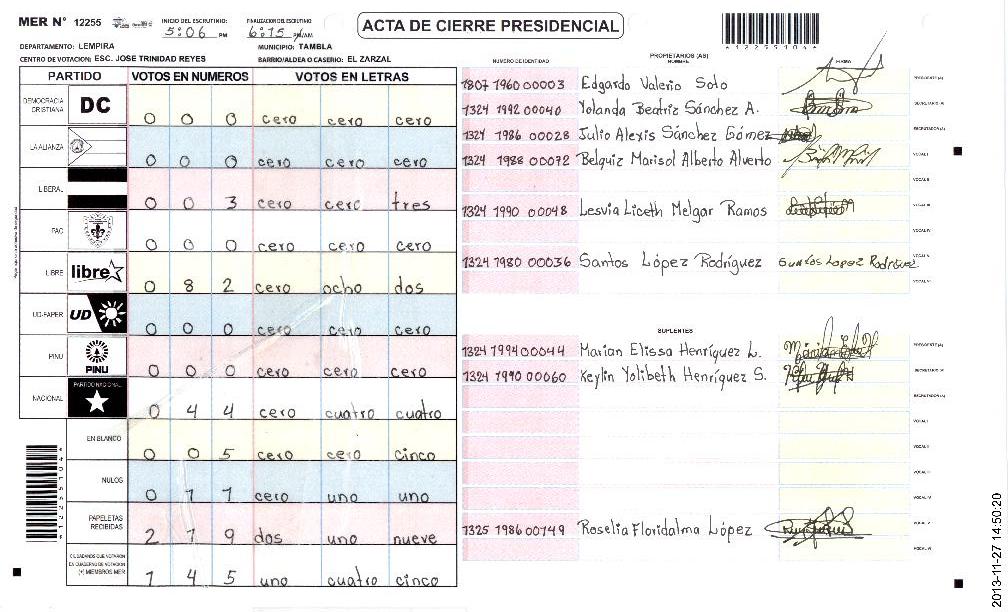 MER N° 12255
INICIO DEL ESCRUTINIO
5:06 PM
FINALIZACION DEL ESCRUTINIO
6:15 PM/AM
ACTA DE CIERRE PRESIDENCIAL
DEPARTAMENTO: LEMPIRA
MUNICIPIO: TAMBLA
CENTRO DE VOTACION: ESC. JOSE TRINIDAD REYES
BARRIO/ALDEA O CASERIO: EL ZARZAL
PARTIDO VOTOS EN NUMEROS VOTOS EN LETRAS
DEMOCRACIA CRISTIANA DC 0 0 0 cero cero cero
LA ALIANZA 0 0 0 cero cero cero
LIBERAL 0 0 3 cero cero tres
PAC 0 0 0 cero cero cero
LIBRE libre 0 8 2 cero ocho dos
UD-FAPER UD 0 0 0 cero cero cero
PINU PINU 0 0 0 cero cero cero
NACIONAL PARTIDO NACIONAL 0 4 4 cero cuatro cuatro
EN BLANCO 0 0 5 cero cero cinco
NULOS 0 1 1 cero uno uno
PAPELETAS RECIBIDAS 2 1 9 dos uno nueve
CIUDADANOS QUE VOTARON EN CUADERNO DE VOTACION (+) MIEMBROS MER 1 4 5 uno cuatro cinco
PROPIETARIOS (AS)
NUMERO DE IDENTIDAD NOMBRE FIRMA
1807 1960 00003 Edgardo Valerio Soto PRESIDENTE (A)
1324 1992 00040 Yolanda Beatriz Sánchez A. SECRETARIO (A)
1324 1986 00028 Julio Alexis Sánchez Gómez ESCRUTADOR (A)
1324 1988 00072 Belquiz Marisol Alberto Alverto VOCAL I
VOCAL II
1324 1990 00048 Lesvia Liceth Melgar Ramos VOCAL III
VOCAL IV
1324 1980 00036 Santos López Rodríguez Santos Lopez Rodriguez VOCAL V
VOCAL VI
SUPLENTES
1324 1994 00044 Marian Elissa Henríquez L. PRESIDENTE (A)
1324 1990 00060 Keylin Yolibeth Henríquez S. SECRETARIO (A)
ESCRUTADOR (A)
VOCAL I
VOCAL II
VOCAL III
VOCAL IV
1325 1986 00149 Roselia Floridalma López VOCAL V
VOCAL VI
2013-11-27 14:50:20